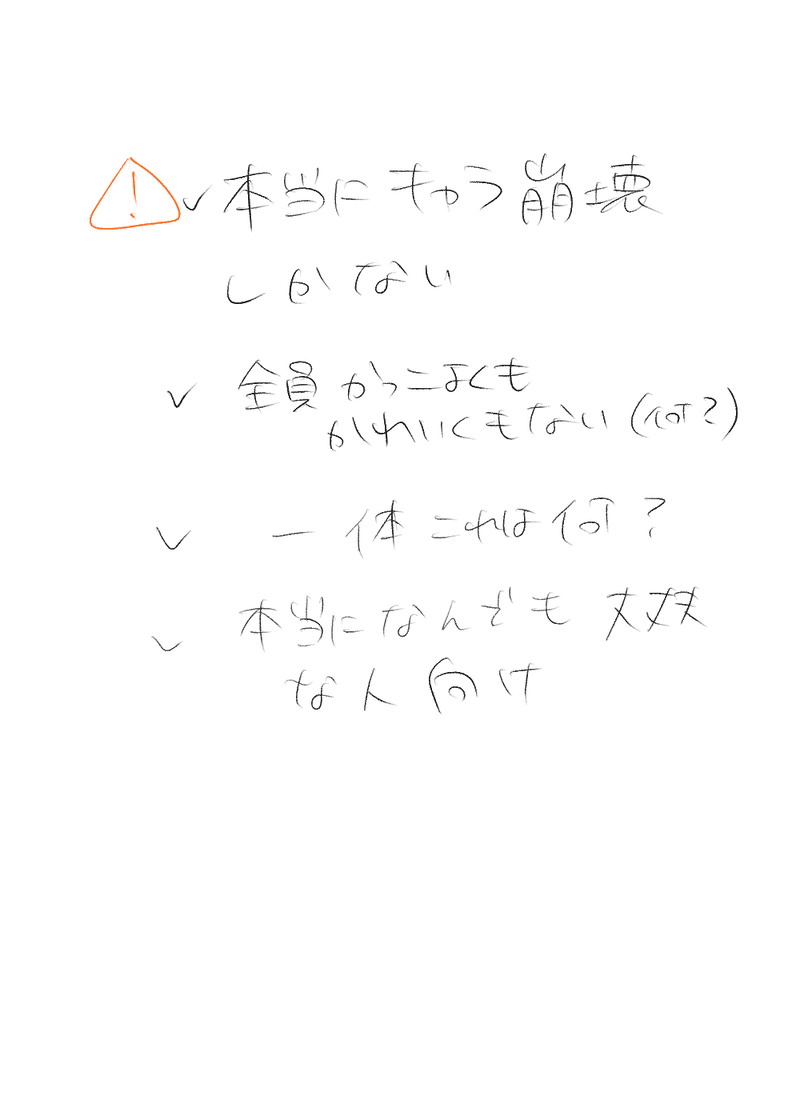 ⚠ ✓ 本当にキャラ崩壊
しかない
✓ 全員かっこよくも
かわいくもない(何?)
✓ 一体これは何?
✓ 本当になんでも大丈夫
な人向け